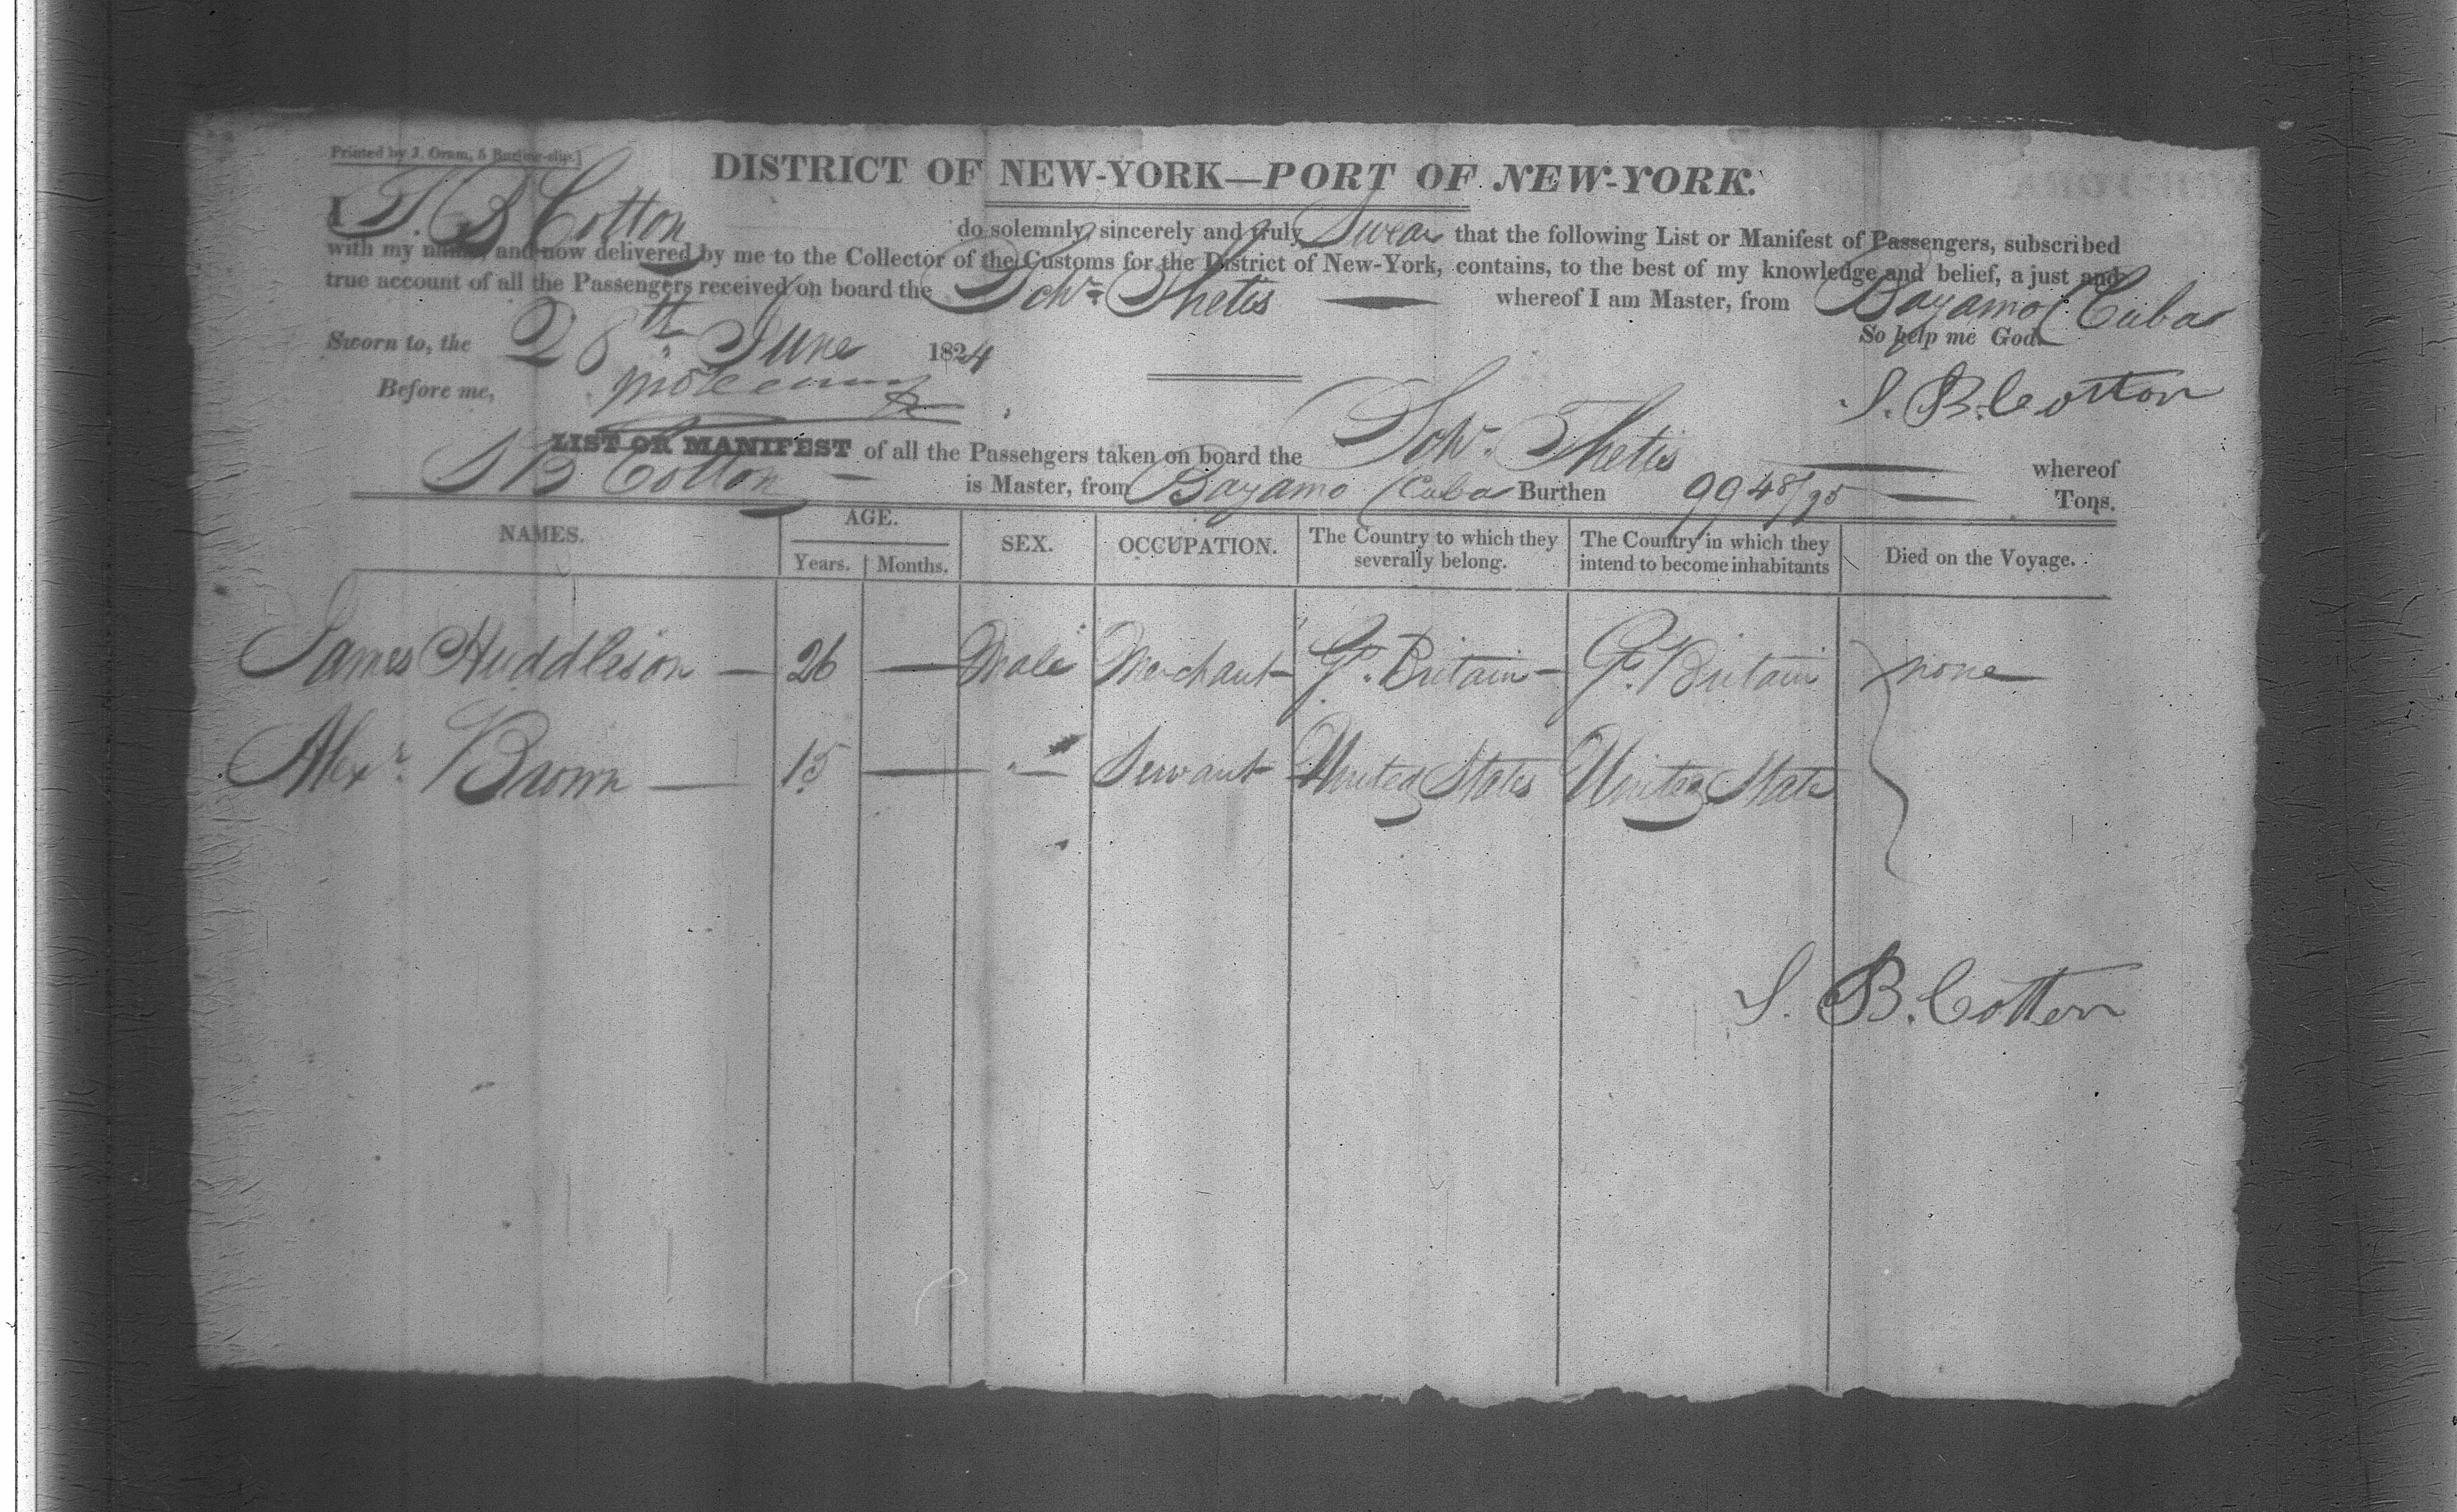 Printed by J. Oram, 5 Burling-slip.]
DISTRICT OF NEW-YORK—PORT OF NEW-YORK.
I S. B Cotton do solemnly, sincerely and truly Swear that the following List or Manifest of Passengers, subscribed
with my name, and now delivered by me to the Collector of the Customs for the District of New-York, contains, to the best of my knowledge and belief, a just and
true account of all the Passengers received on board the Schr Thetis whereof I am Master, from Bayamo (Cuba
So help me God.
Sworn to, the 28th June 1824
Before me,
S. B. Cotton
LIST OR MANIFEST of all the Passengers taken on board the Schr. Thetis whereof
S B Cotton is Master, from Bayamo (Cuba Burthen 99 48/95 Tons.
NAMES. AGE. SEX. OCCUPATION. The Country to which they severally belong. The Country in which they intend to become inhabitants Died on the Voyage.
Years. Months.
James Huddleson — 26 — Male Merchant Gt. Britain — Gt. Britain none
Alexr. Brown — 15 — " — Servant United States United States
S. B. Cotton